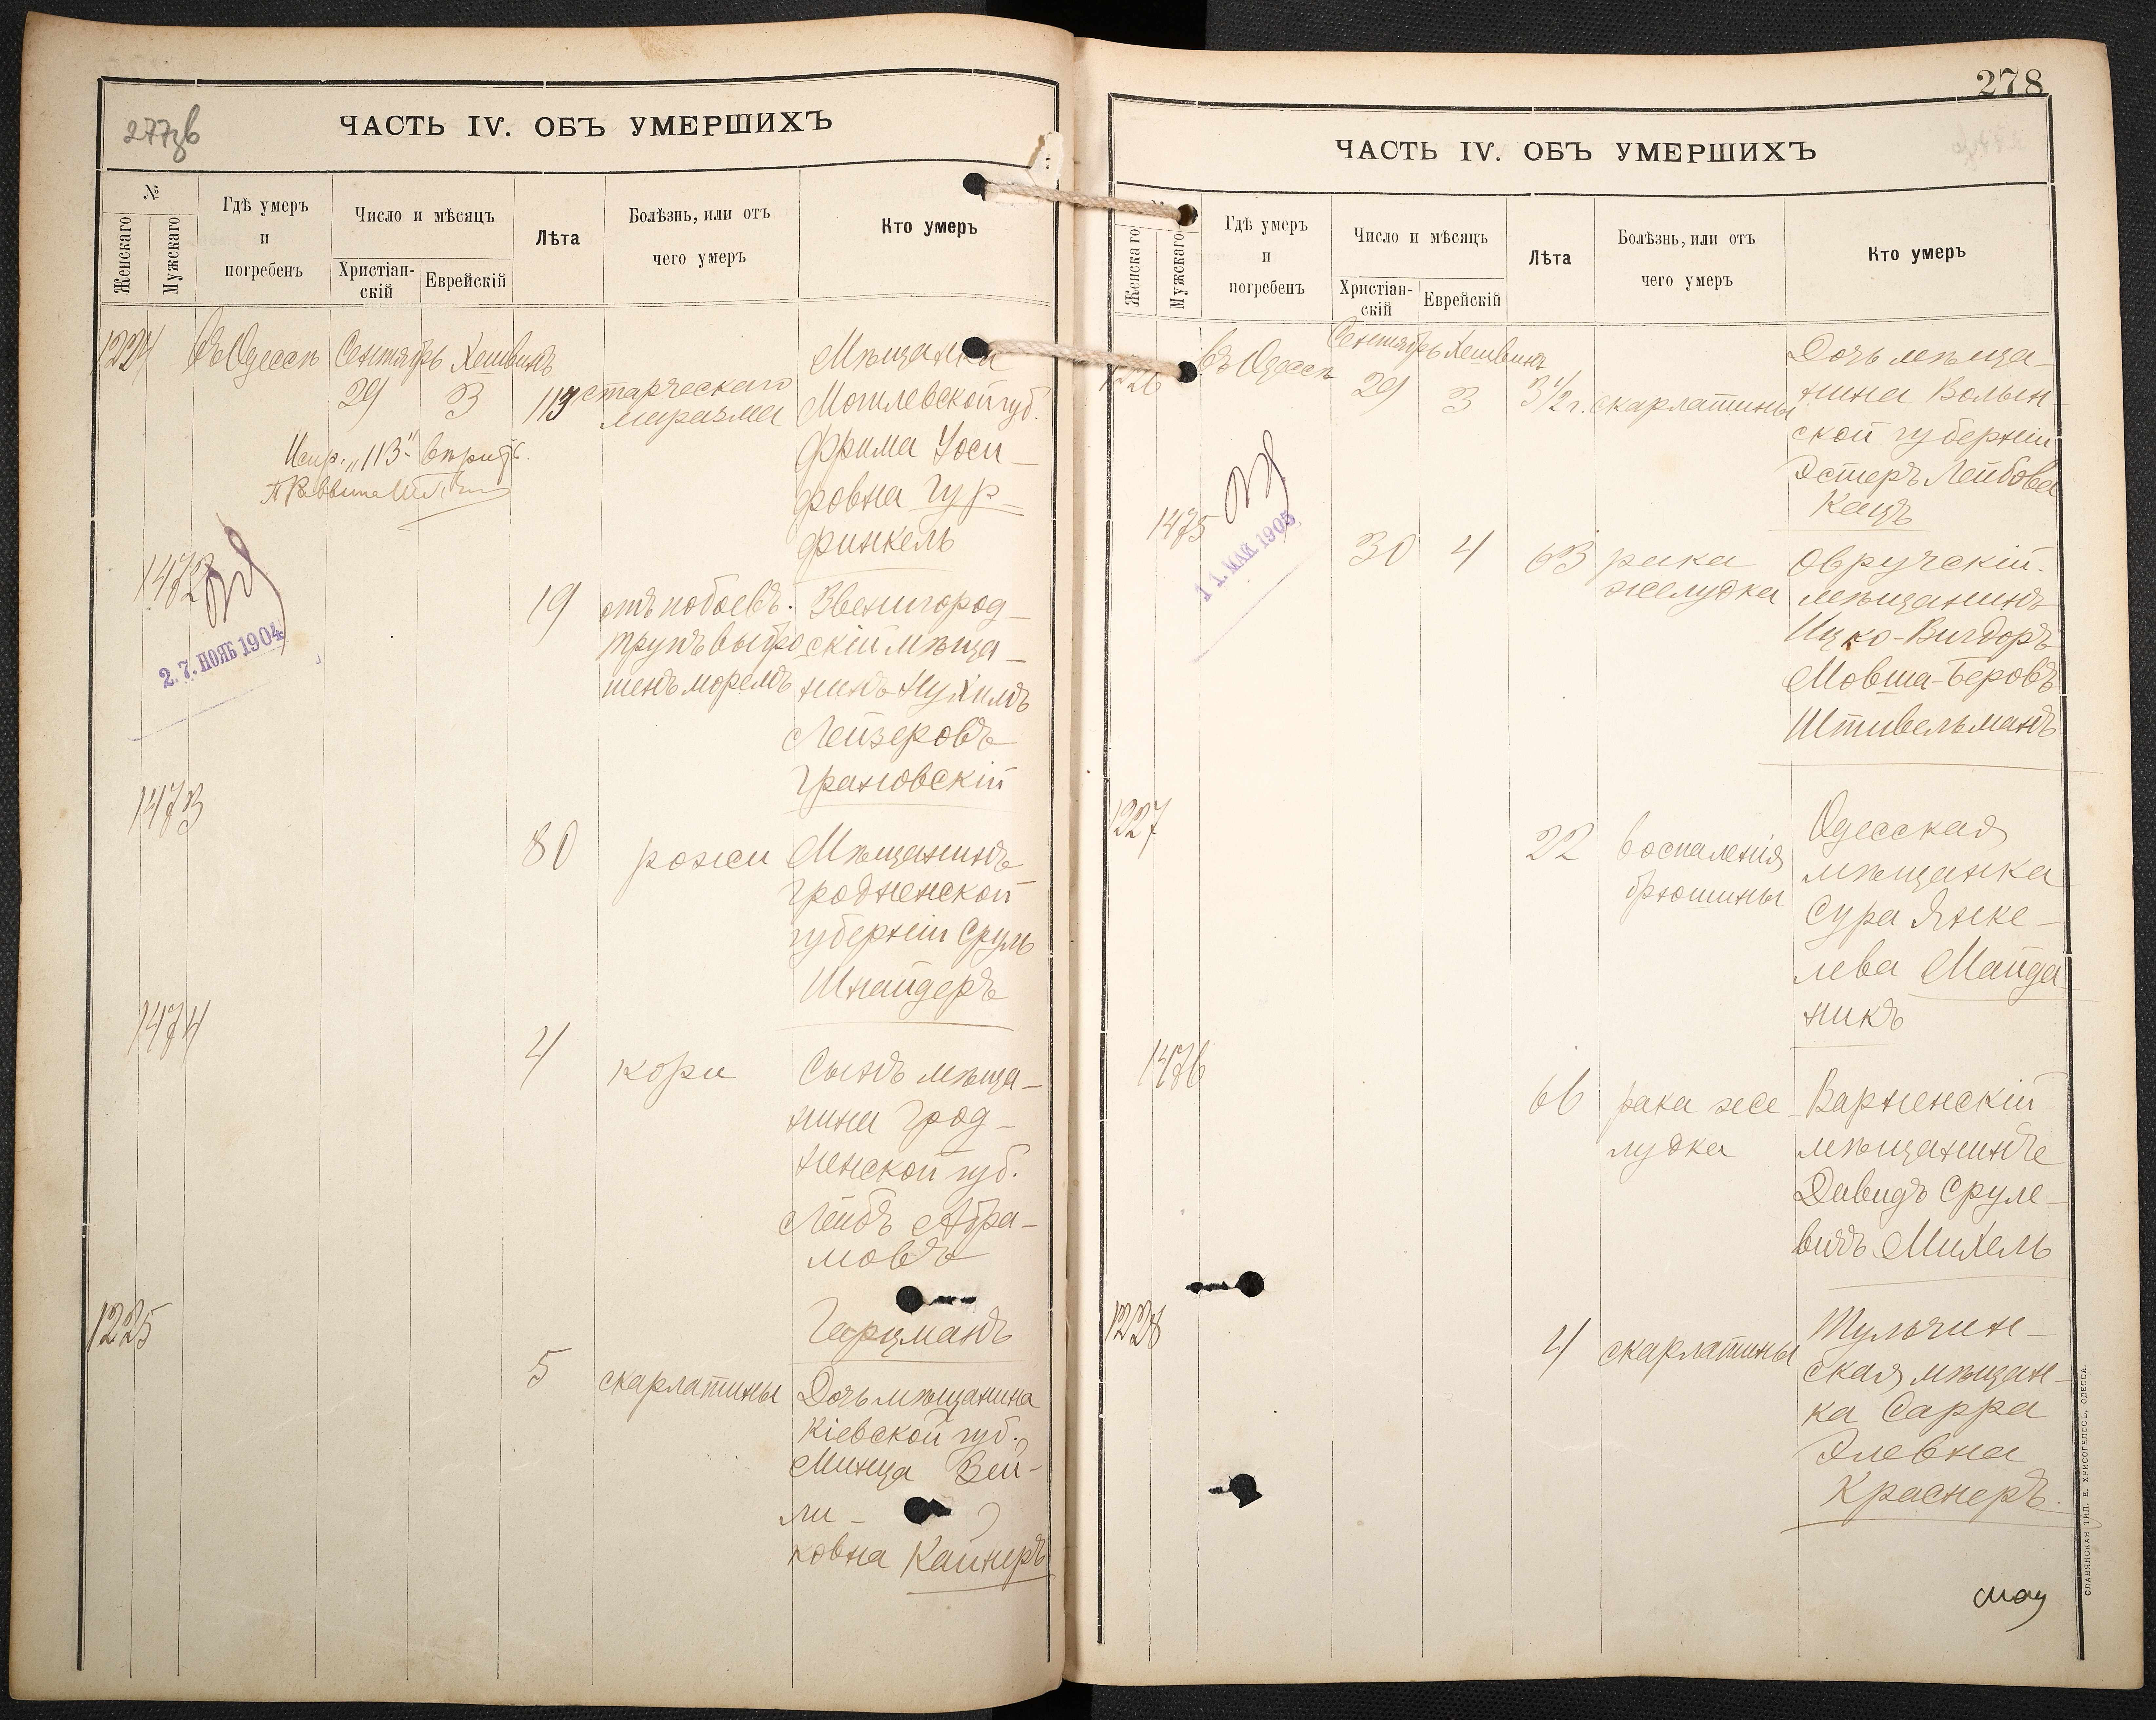 277зв
ЧАСТЬ IV. ОБЪ УМЕРШИХЪ
№
Женскаго
Мужскаго
Гдѣ умеръ
и
погребенъ
Число и мѣсяцъ
Христіан-
скій
Еврейскій
Лѣта
Болѣзнь, или отъ
чего умеръ
Кто умеръ
1224
Въ Одессѣ
Сентябрь Хешвинъ
29
3
113
старческаго
маразма
Мѣщанка
Могилевской губ.
Фрима Іоси-
фовна Гур-
финкель
Испр. "113"
1472
27. НОЯБ 1904
19
отъ побоевъ.
трупъ выбро
шенъ моремъ
Звенигород-
скій мѣща-
нинъ Нухимъ
Лейзеровъ
Грановскій
1473
80
рожи
Мѣщанинъ
Гродненской
губерніи Сруль
Шнайдеръ
1474
4
кори
Сынъ мѣща-
нина Грод-
ненской губ.
Лейбъ Абра-
мовъ
Гарцманъ
1225
5
скарлатины
Дочь мѣщанина
Кіевской губ.
Минца Вей-
ли-
ковна Кайнеръ
278
ЧАСТЬ IV. ОБЪ УМЕРШИХЪ
Женскаго
Мужскаго
Гдѣ умеръ
и
погребенъ
Число и мѣсяцъ
Христіан-
скій
Еврейскій
Лѣта
Болѣзнь, или отъ
чего умеръ
Кто умеръ
1226
Въ Одессѣ
Сентябрь Хешвинъ
29
3
3 1/2 г.
скарлатины
Дочь мѣща-
нина Волын-
ской губерніи
Эстеръ Лейбова
Кацъ
1475
11. МАЙ 1905
30
4
63
рака
желудка
Овручскій
мѣщанинъ
Ицко-Вигдоръ
Мовша-Беровъ
Штивельманъ
1227
22
воспаленія
брюшины
Одесская
мѣщанка
Сура Янке-
лева Майда
никъ
1476
66
рака же-
лудка
Варненскій
мѣщанинъ
Давидъ Сруле-
вичъ Михель
1228
4
скарлатины
Тульчин-
ская мѣщан-
ка Сарра
Элевна
Краснеръ.
СЛАВЯНСКАЯ ТИП. Е. ХРИСОГЕЛОСЪ, ОДЕССА.